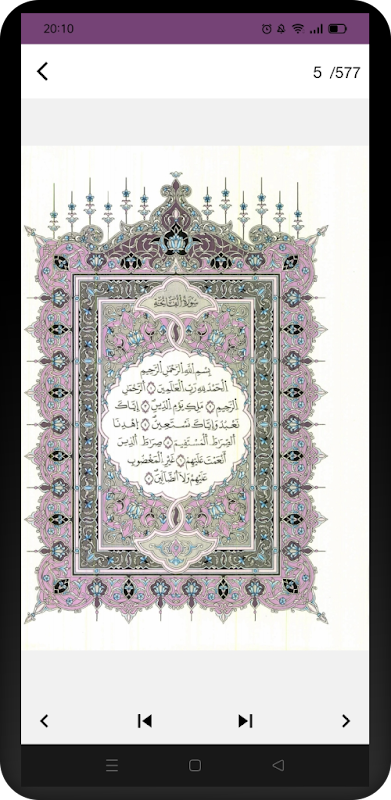 20:10
5 /577
سُورَةُ الْفَاتِحَةِ
بِسْمِ اللَّهِ الرَّحْمَٰنِ الرَّحِيمِ
الْحَمْدُ لِلَّهِ رَبِّ الْعَٰلَمِينَ ۝ الرَّحْمَٰنِ
الرَّحِيمِ ۝ مَلِكِ يَوْمِ الدِّينِ ۝ إِيَّاكَ
نَعْبُدُ وَإِيَّاكَ نَسْتَعِينُ ۝ اهْدِنَا
الصِّرَٰطَ الْمُسْتَقِيمَ ۝ صِرَٰطَ الَّذِينَ
أَنْعَمْتَ عَلَيْهِمْ ۝ غَيْرِ الْمَغْضُوبِ
عَلَيْهِمْ وَلَا الضَّالِّينَ ۝